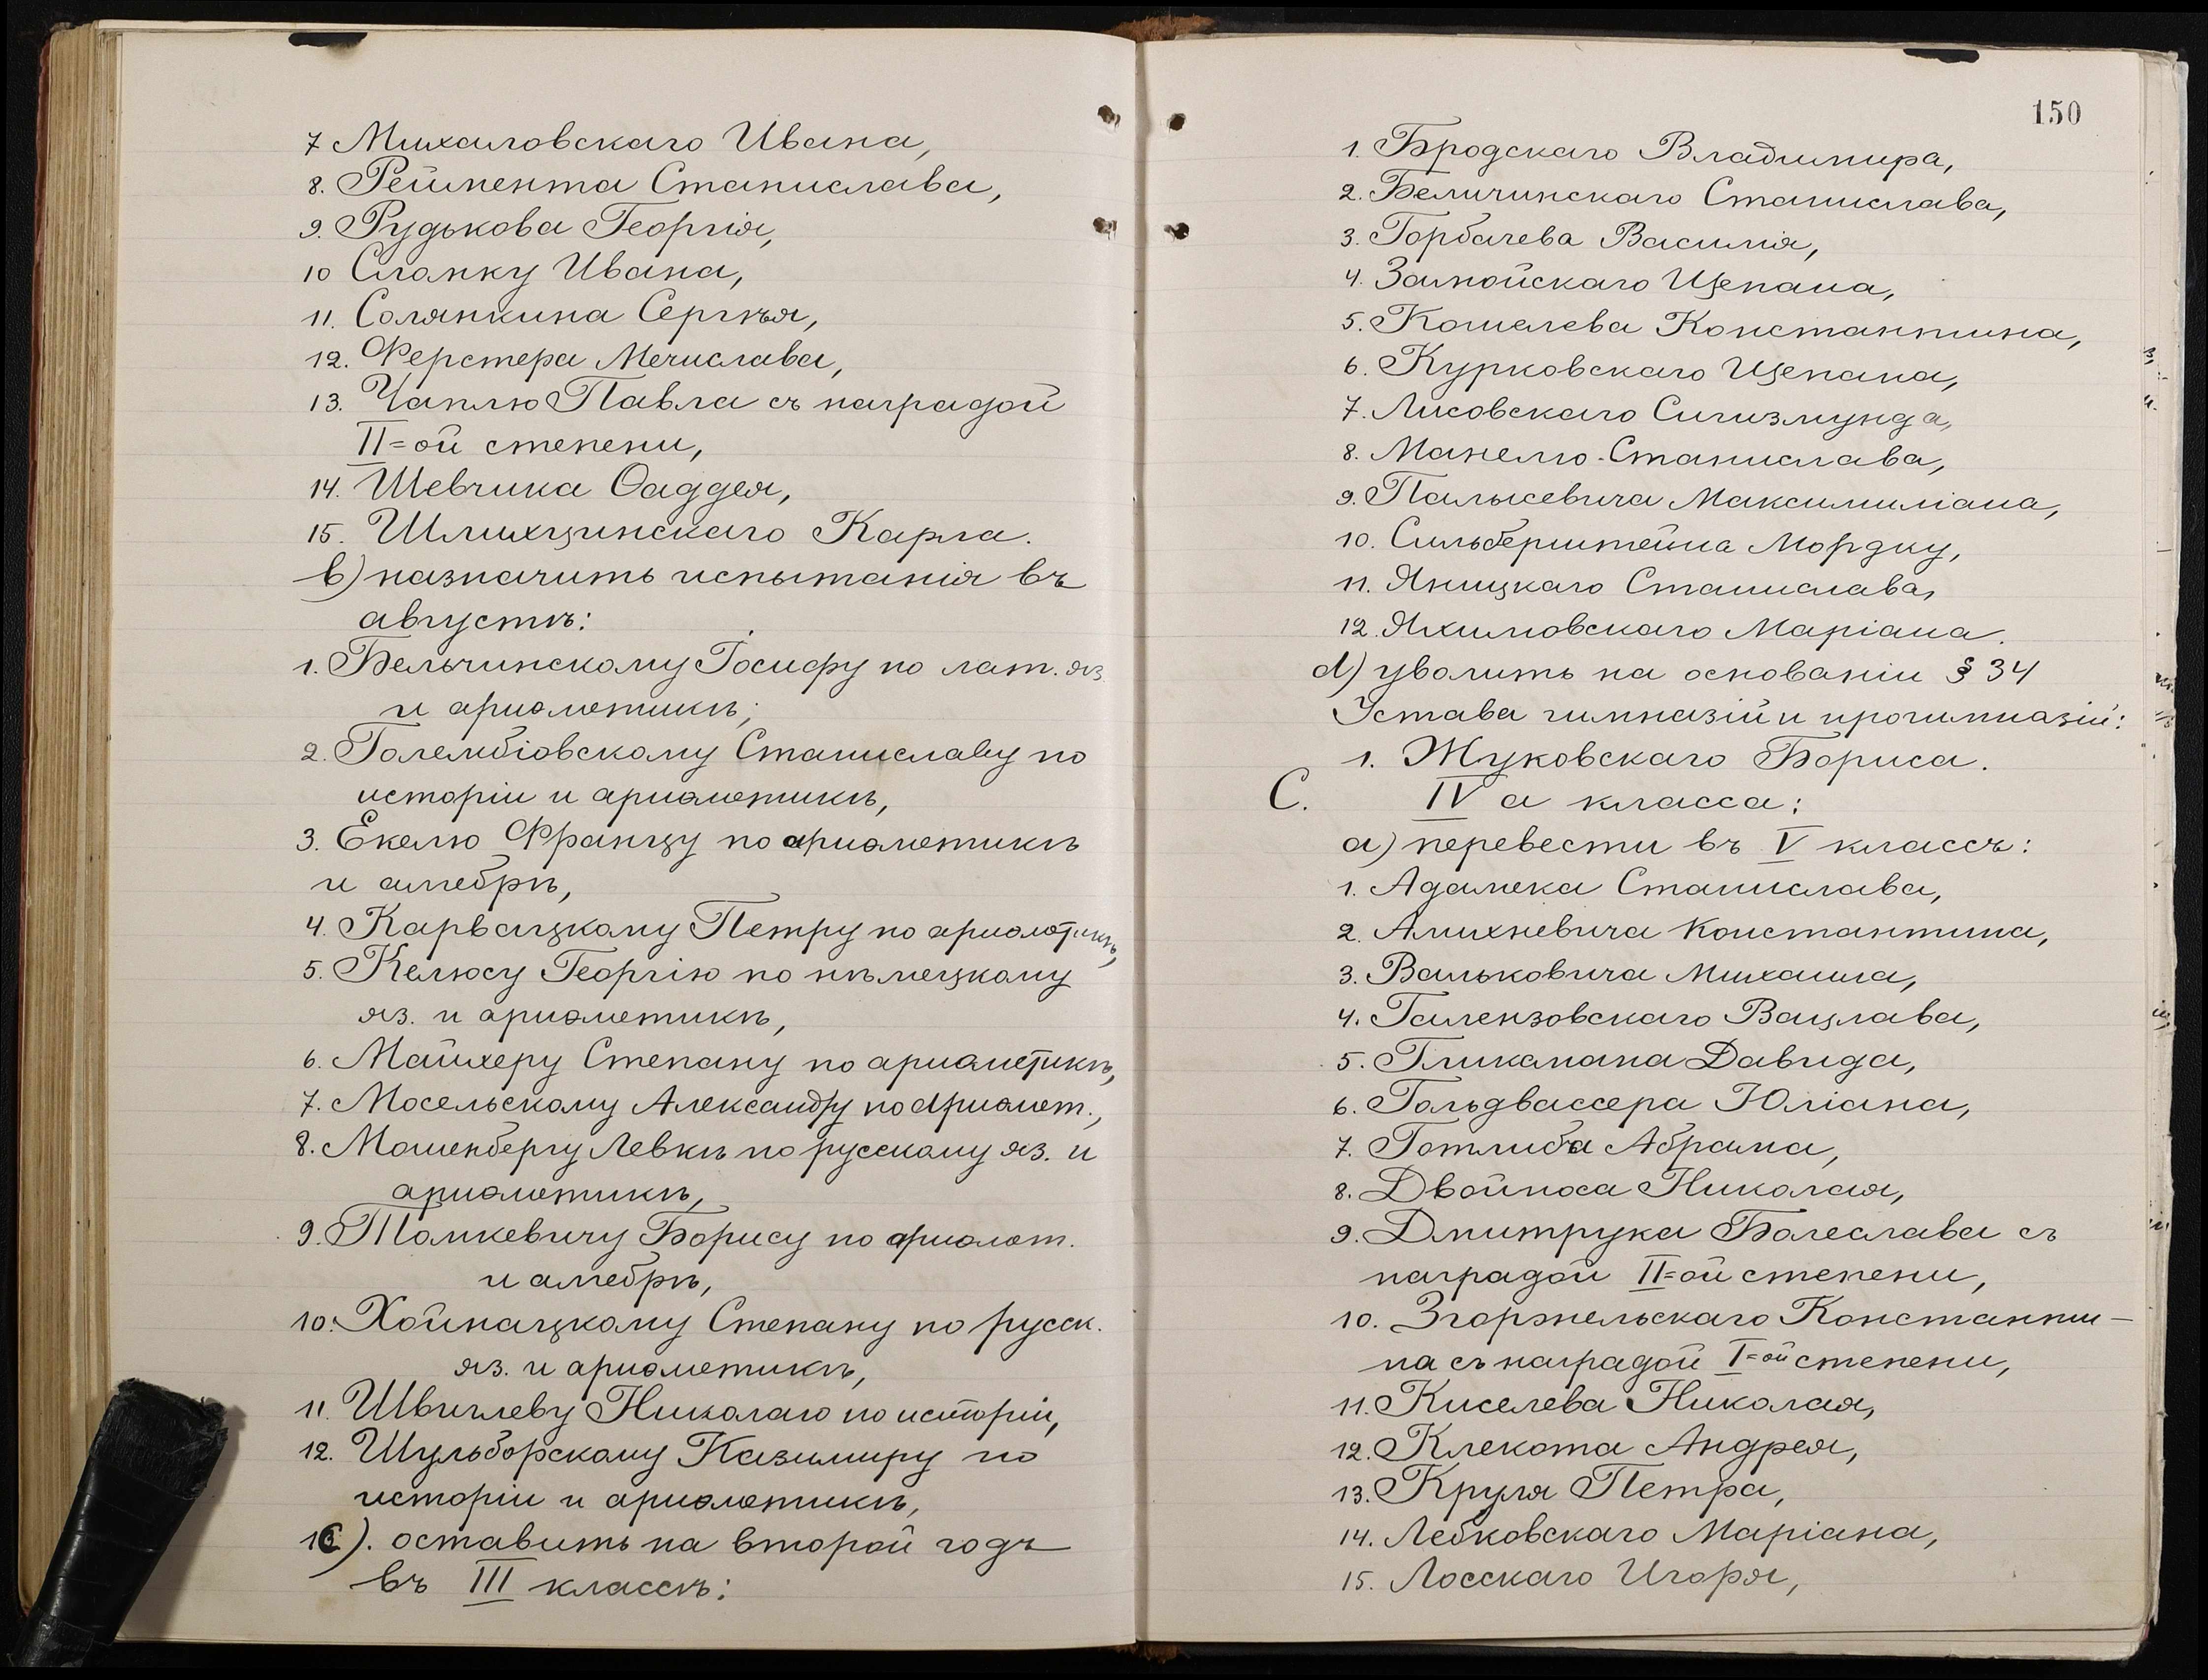 7 Михаловскаго Ивана,
8. Реймента Станислава,
9. Рудькова Георгія,
10 Сломку Ивана,
11. Солянкина Сергѣя,
12. Ферстера Мечислава,
13. Чаплю Павла съ наградой
II=ой степени,
14. Шевчика Ѳаддея,
15. Шлихцинскаго Карла.
b) назначить испытанія въ
августѣ:
1. Бельчинскому Іосифу по лат. яз.
и ариѳметикѣ;
2. Голембіовскому Станиславу по
исторіи и ариѳметикѣ,
3. Екелю Францу по ариѳметикѣ
и алгебрѣ,
4. Карвацкому Петру по ариѳметикѣ,
5. Келюсу Георгію по нѣмецкому
яз. и ариѳметикѣ,
6. Майхеру Степану по ариѳметикѣ,
7. Мосельскому Александру по ариѳмет.,
8. Мошенбергу Левкѣ по русскому яз. и
ариѳметикѣ,
9. Томкевичу Борису по ариѳмет.
и алгебрѣ,
10. Хойнацкому Степану по русск.
яз. и ариѳметикѣ,
11. Швычеву Николаю по исторіи,
12. Шульборскому Казимиру по
исторіи и ариѳметикѣ,
c). оставить на второй годъ
въ III классѣ:
150
1. Бродскаго Владимира,
2. Беличинскаго Станислава,
3. Горбачева Василія,
4. Замойскаго Щепана,
5. Кошелева Константина,
6. Курковскаго Щепана,
7. Лисовскаго Сигизмунда,
8. Манелю Станислава,
9. Палысевича Максимиліана,
10. Сильберштейна Мордку,
11. Яницкаго Станислава,
12. Яхимовскаго Маріана.
d) уволить на основаніи § 34
Устава гимназій и прогимназій:
1. Жуковскаго Бориса.
C. IV а класса:
a) перевести въ V классъ:
1. Адамека Станислава,
2. Амихневича Константина,
3. Вальковича Михаила,
4. Галензовскаго Вацлава,
5. Гликмана Давида,
6. Гольдвассера Юліана,
7. Готлиба Абрама,
8. Двойноса Николая,
9. Дмитрука Болеслава съ
наградой II=ой степени,
10. Згоржельскаго Константи-
на съ наградой I=ой степени,
11. Киселева Николая,
12. Клекота Андрея,
13. Круля Петра,
14. Лебковскаго Маріана,
15. Лосскаго Игоря,